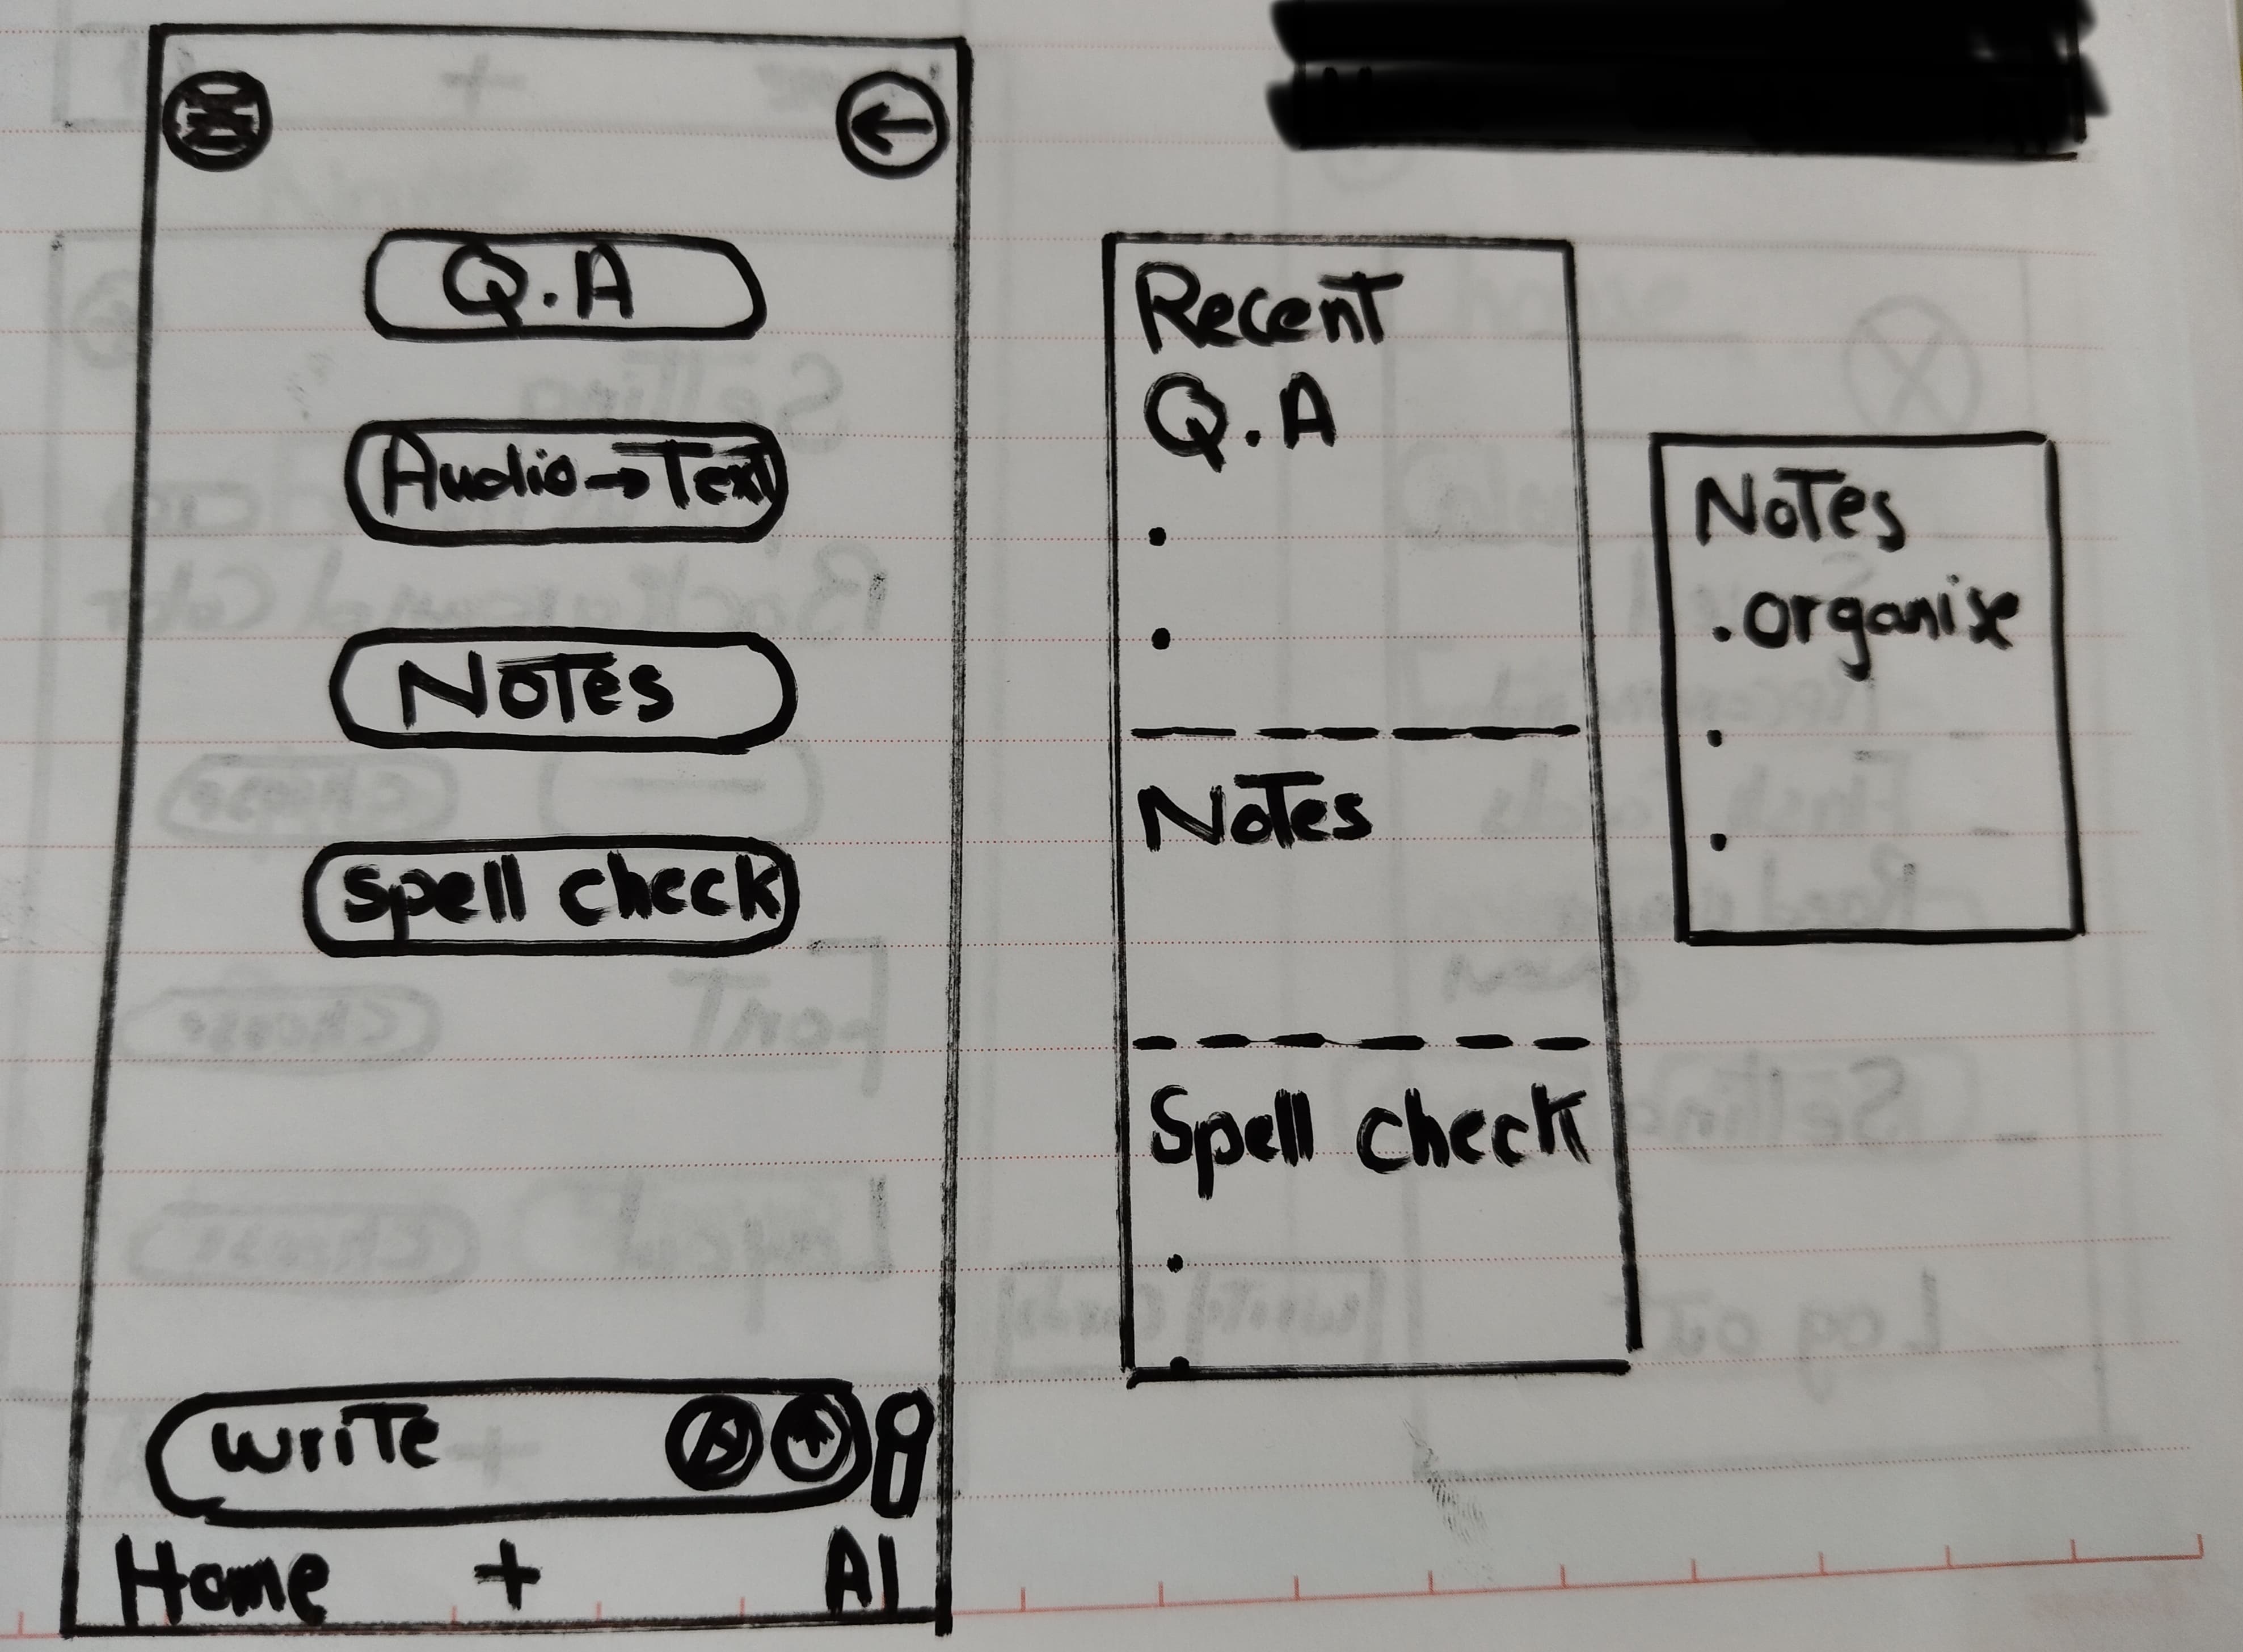 Q.A
Audio→Text
Notes
Spell check
write
Home + AI
Recent
Q.A
.
.
Notes
Spell check
.
.
Notes
. organise
.
.